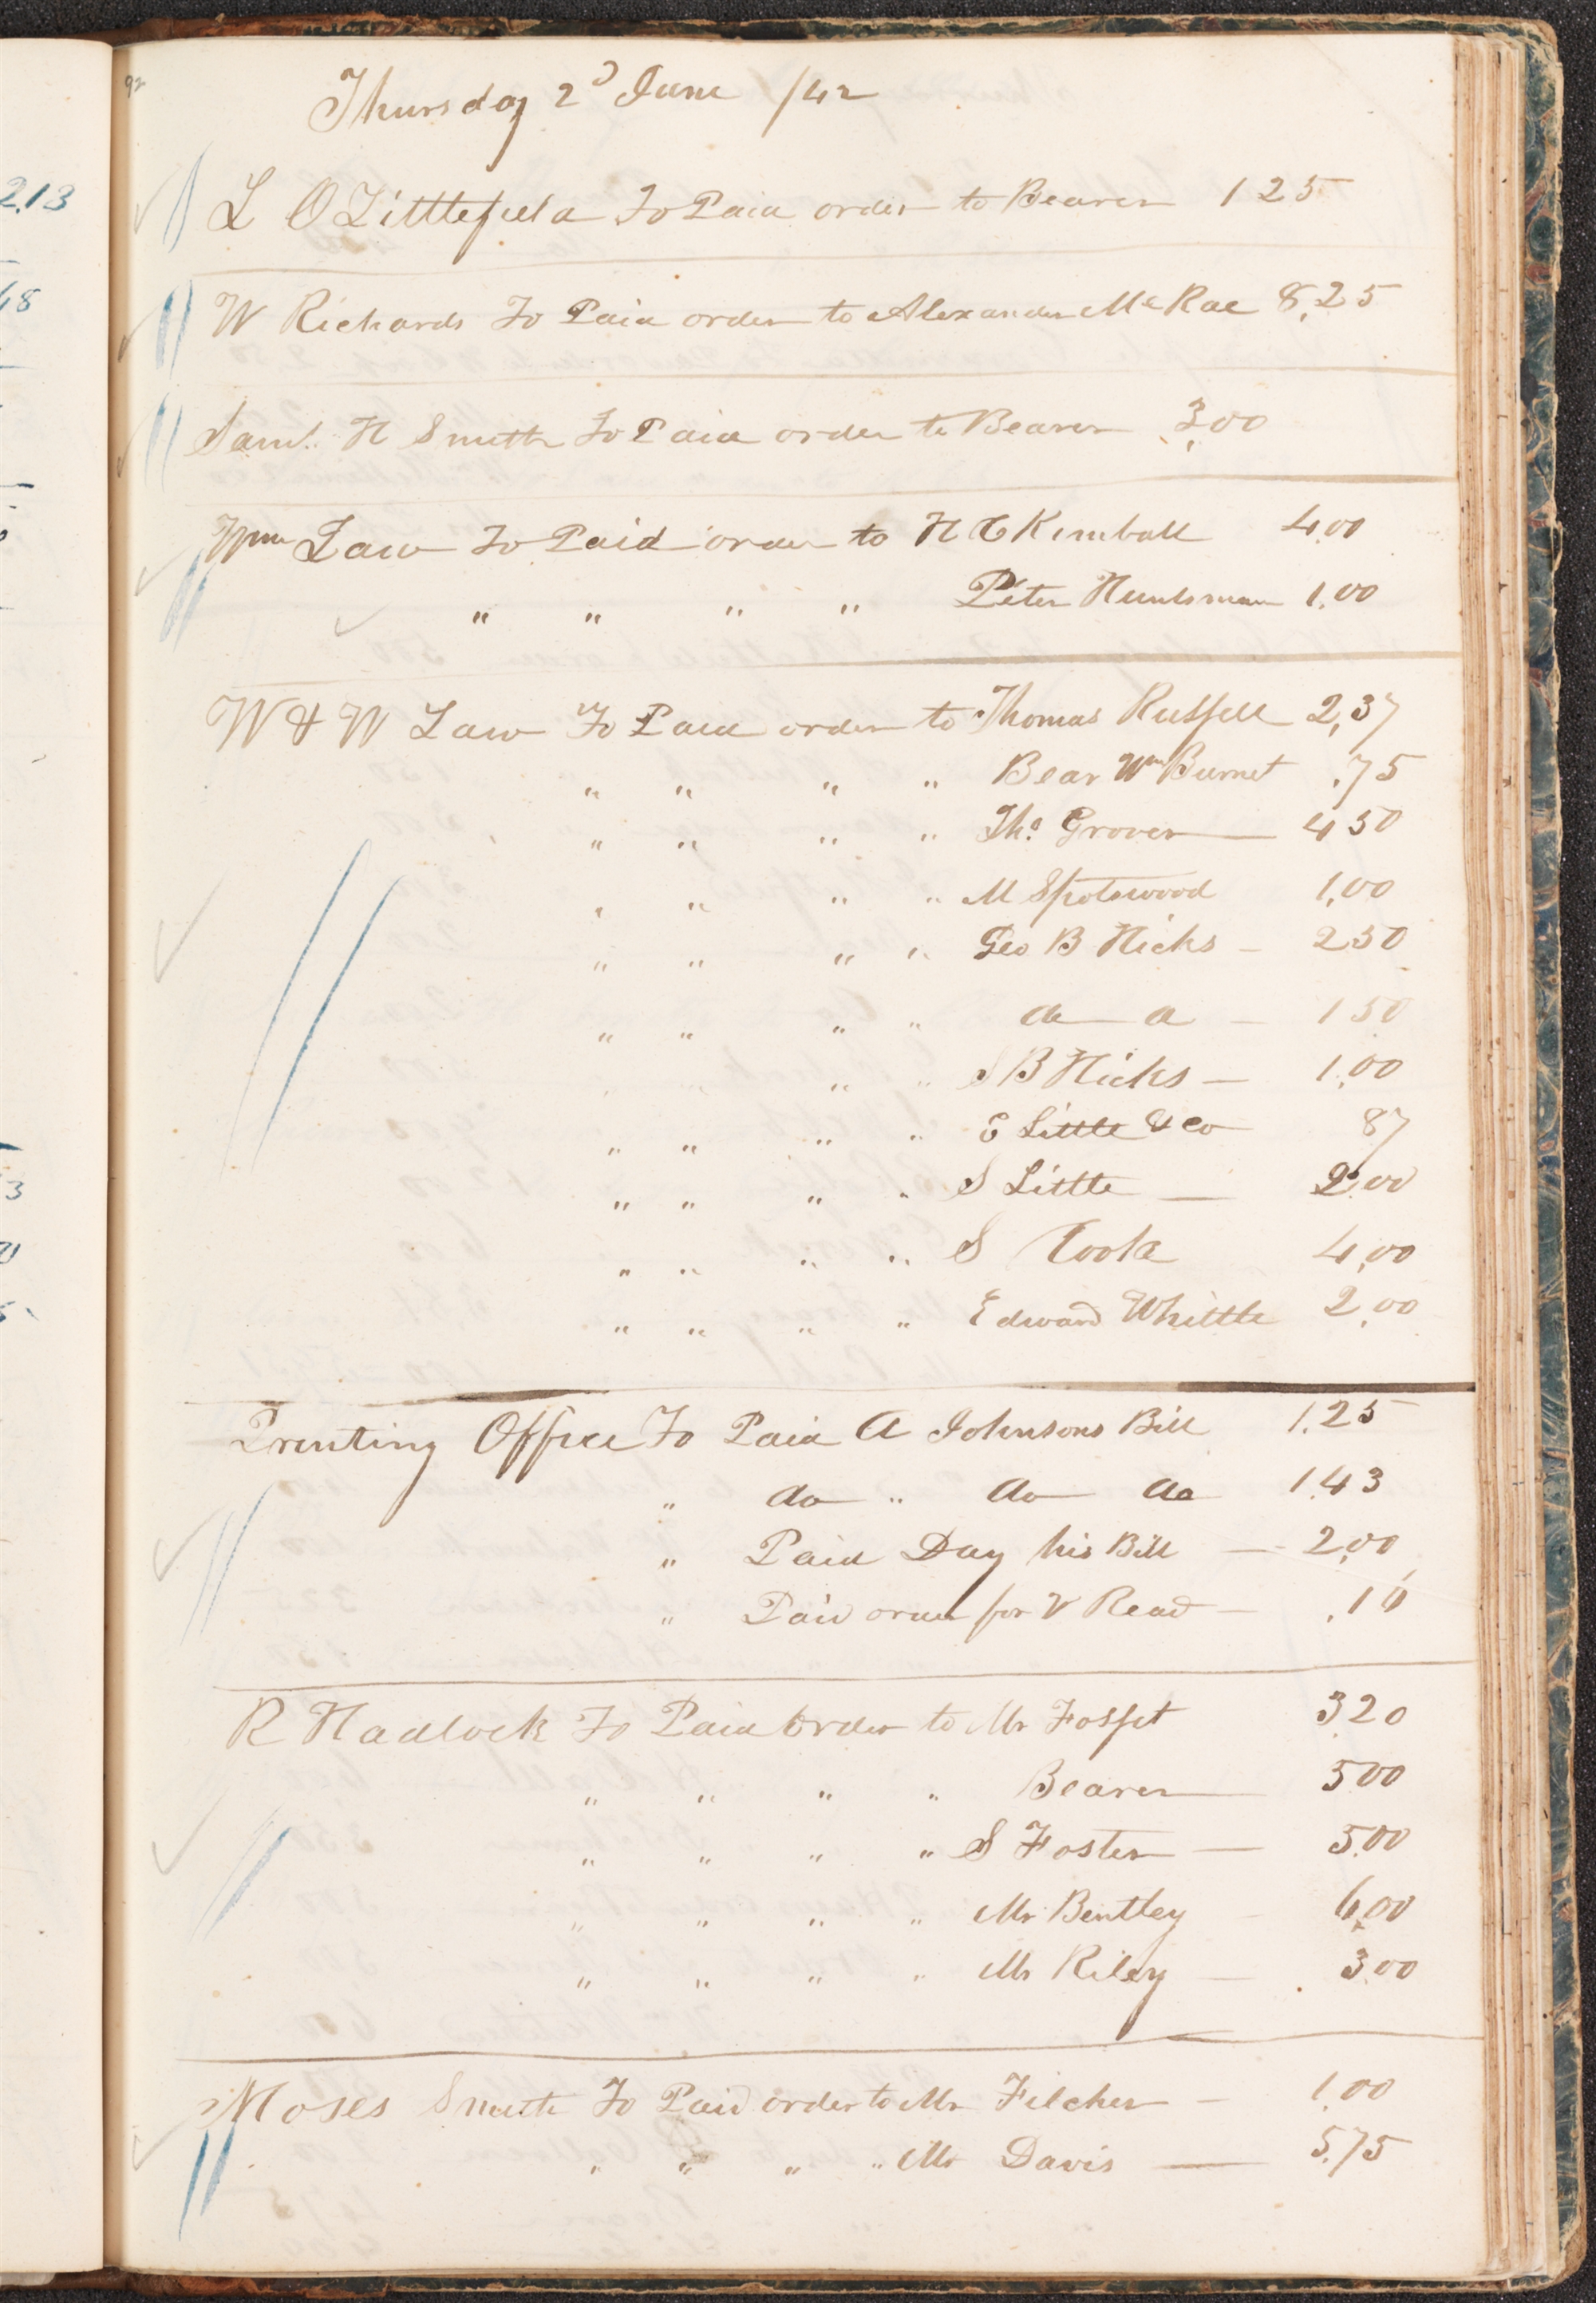 92
Thursday 2d June /42
L O Littlefield To Paid order to Bearer 1 25
W Richards To Paid order to Alexander McRae 8,25
Saml. H Smith To Paid order to Bearer 3,00
Wm Law To Paid order to H C Kimball 4.00
" " " " Peter Huntsman 1.00
W & W Law To Paid order to Thomas Russell 2,37
" " " " Bear Wm Burnet .75
" " " " Tho. Grover — 4 50
" " " " M Spotswood 1,00
" " " " Geo B Hicks – 2 50
" " " " – 1 50
" " S B Hicks – 1.00
" " " " E Little & Co 87
" " " " S Little — 2.00
" " " " S Cook 4,00
" " " " Edward Whittle 2.00
Printing Office To Paid A Johnsons Bill 1.25
" do " do do 1.43
" Paid Day his Bill — 2,00
" Paid order for Read –
R Hadlock To Paid order to Mr Fosset 3 20
" " " " Bearer — 5 00
" " " " S Foster — 5.00
" " " " Mr Bentley – 6,00
" " " " Mr Riley – 3 00
Moses Smith To Paid order to Mr Filcher – 1.00
" " " " Mr Davis — 5.75
2.13
48
3